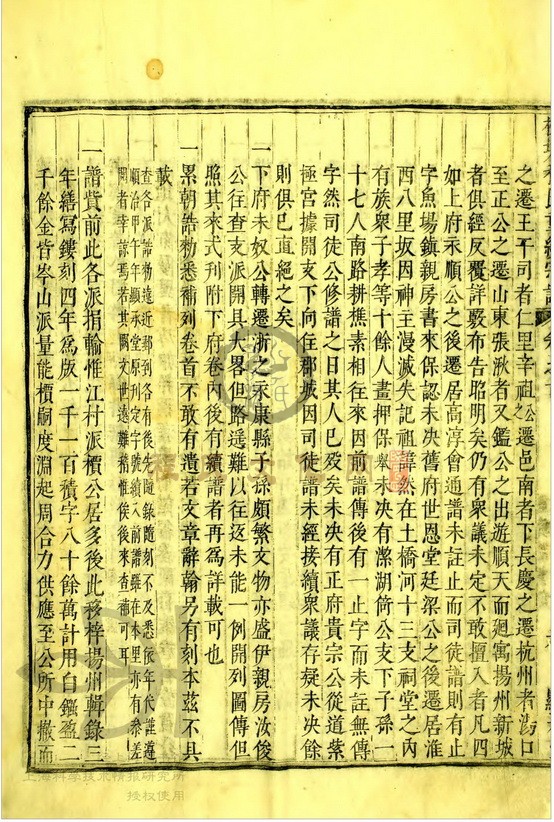 之遷王干司者仁里辛祖公之遷邑南者下長慶之遷杭州者湯口
至正公之遷山東張湫者又鑑公之出遊順天而廻寓揚州新城
者俱經反覆詳覈布告昭明矣仍有衆議未定不敢擅入者凡四
如上府永順公之後遷居高淳會通譜未註止而司徒譜則有止
字魚場鎮親房書來保認未決舊府世恩堂廷梁公之後遷居淮
西八里坂因神主漫滅失記祖諱然在土橋河十三支祠堂之內
有族衆子孝等十餘人畫押保舉未決有潔湖筯公支下子孫一
十七人南路耕樵素相往來因前譜傳後有一止字而師未註無傳
字然司徒公修譜之日其人已歿矣未決有正府貴宗公從道葉
極宮據開支下向住郡城因司徒譜未經接續衆議存疑未決餘
則俱已直絕之矣
一下府未奴公轉遷浙之永康縣子孫頗繁文物亦盛伊親房汝俊
公往查支派開具大畧但路遥難以往返未能一例開列圖傳但
照其來式刊附下府卷內後有續譜者再為詳載可也
一累朝誥勅悉補列卷首不敢有遺若文章辭翰另有刻本茲不具
載
查各派誥勅遠近郵到各有後先隨錄隨刻不及悉依年代謹遵
順治甲午年顯承堂原刊定字號續入前譜雖在本里亦有叅差
閱者幸諒焉若其閥文世遠難稽惟俟後來查補可耳
一譜貲前此各派捐輸惟江村派檟公居多後此移梓揚州輯錄三
年繕寫鏤刻四年為版一千一百積字八十餘萬計用白鏹盈二
千餘金皆岑山派量能檟嗣度淵起周合力供應至公所中撤而
上海科學技術情報研究所
授权使用